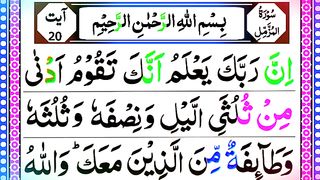 سُوْرَةُ الْمُزَّمِّل
بِسْمِ اللهِ الرَّحْمٰنِ الرَّحِيْمِ
آیت 20
اِنَّ رَبَّكَ يَعْلَمُ اَنَّكَ تَقُوْمُ اَدْنٰى
مِنْ ثُلُثَيِ الَّيْلِ وَنِصْفَهٗ وَثُلُثَهٗ
وَطَآئِفَةٌ مِّنَ الَّذِيْنَ مَعَكَ ؕ وَاللّٰهُ